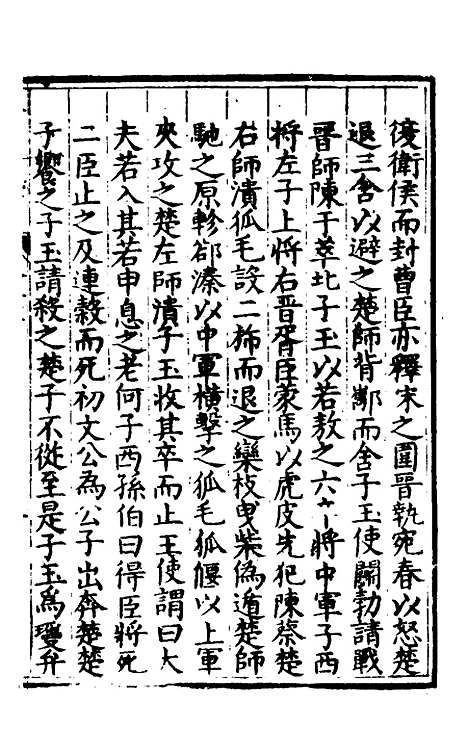 復衛侯而封曹臣亦釋宋之圍晉執宛春以怒楚
退三舍以避之楚師背酅而舍子玉使鬬勃請戰
晉師陳于莘北子玉以若敖之六卒將中軍子西
將左子上將右晉胥臣蒙馬以虎皮先犯陳蔡楚
右師潰狐毛設二旆而退之欒枝曳柴偽遁楚師
馳之原軫郤溱以中軍橫擊之狐毛狐偃以上軍
夾攻之楚左師潰子玉收其卒而止王使謂曰大
夫若入其若申息之老何子西孫伯曰得臣將死
二臣止之及連穀而死初文公為公子出奔楚楚
子饗之子玉請殺之楚子不從至是子玉為瓊弁